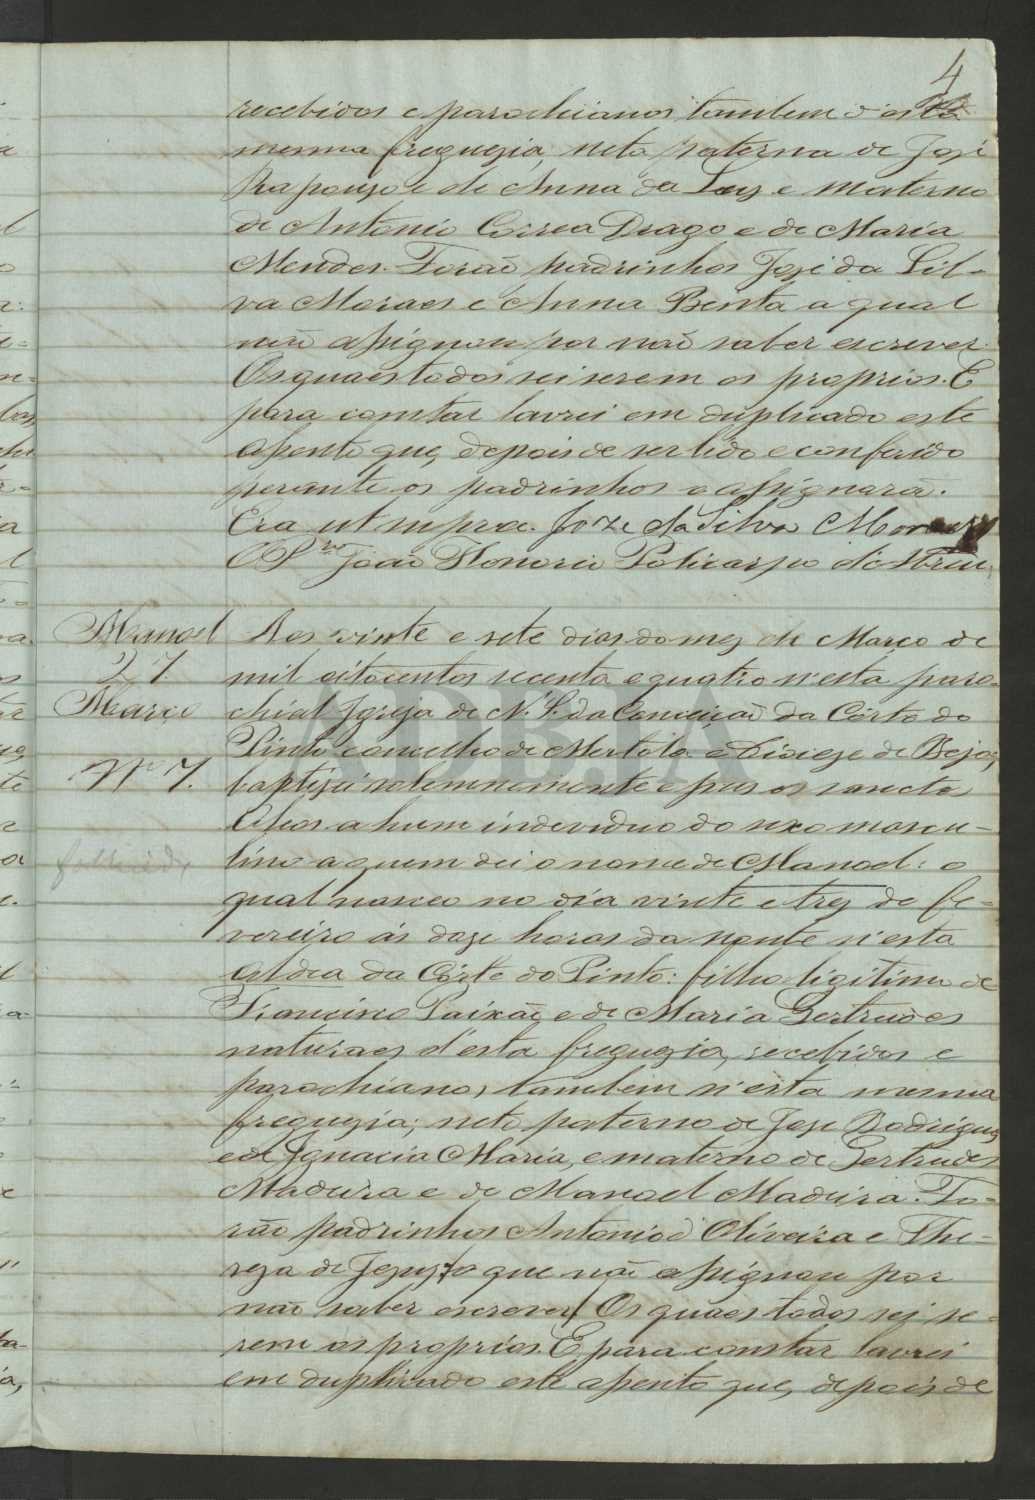 4
recebidos e parochianos tambem d'esta
mesma freguezia, neto paterna de José
Raposo e de Anna da Luz e materno
de Antonio Correa Drago e de Maria
Mendes. Forão padrinhos José da Sil-
va Moraes e Anna Benta a qual
não assignou por não saber escrever.
Os quaes todos sei serem os proprios. E
para constar lavrei em duplicado este
assento que, depois de ser lido e conferido
perante os padrinhos o assignarã.
Era ut supra. Joze da Silva Moraes
O P.re João Honorio Policarpo d'Abreu
Manoel
27
Março
Nº 7.
fallecido
Aos vinte e sete dias do mez de Março de
mil oitocentos secenta e quatro n'esta paro-
chial Igreja de N. S. da Conceição da Córte do
Pinto concelho de Mertola e Diocese de Beja,
baptizei solemnemente e pus os sanctos
Oleos a hum individuo do sexo mascu-
lino a quem dei o nome de Manoel: o
qual nasceu no dia vinte e trez de fe-
vereiro ás doze horas da noute n'esta
Aldea da Córte do Pinto: filho ligitimo de
Francisco Paixão e de Maria Gertrudes
naturaes d'esta freguezia, recebidos e
parochianos, tambem n'esta mesma
freguezia; neto paterno de Jose Rodrigues
e de Ignacia Maria, e materno de Gertrudes
Madeira e de Manoel Madeira. Fo-
rão padrinhos Antonio d'Oliveira e The-
reza de Jezus, o que não assignou por
não saber escrever. Os quaes todos sei se-
rem os proprios. E para constar lavrei
em duplicado este assento que, depois de
ADBJA